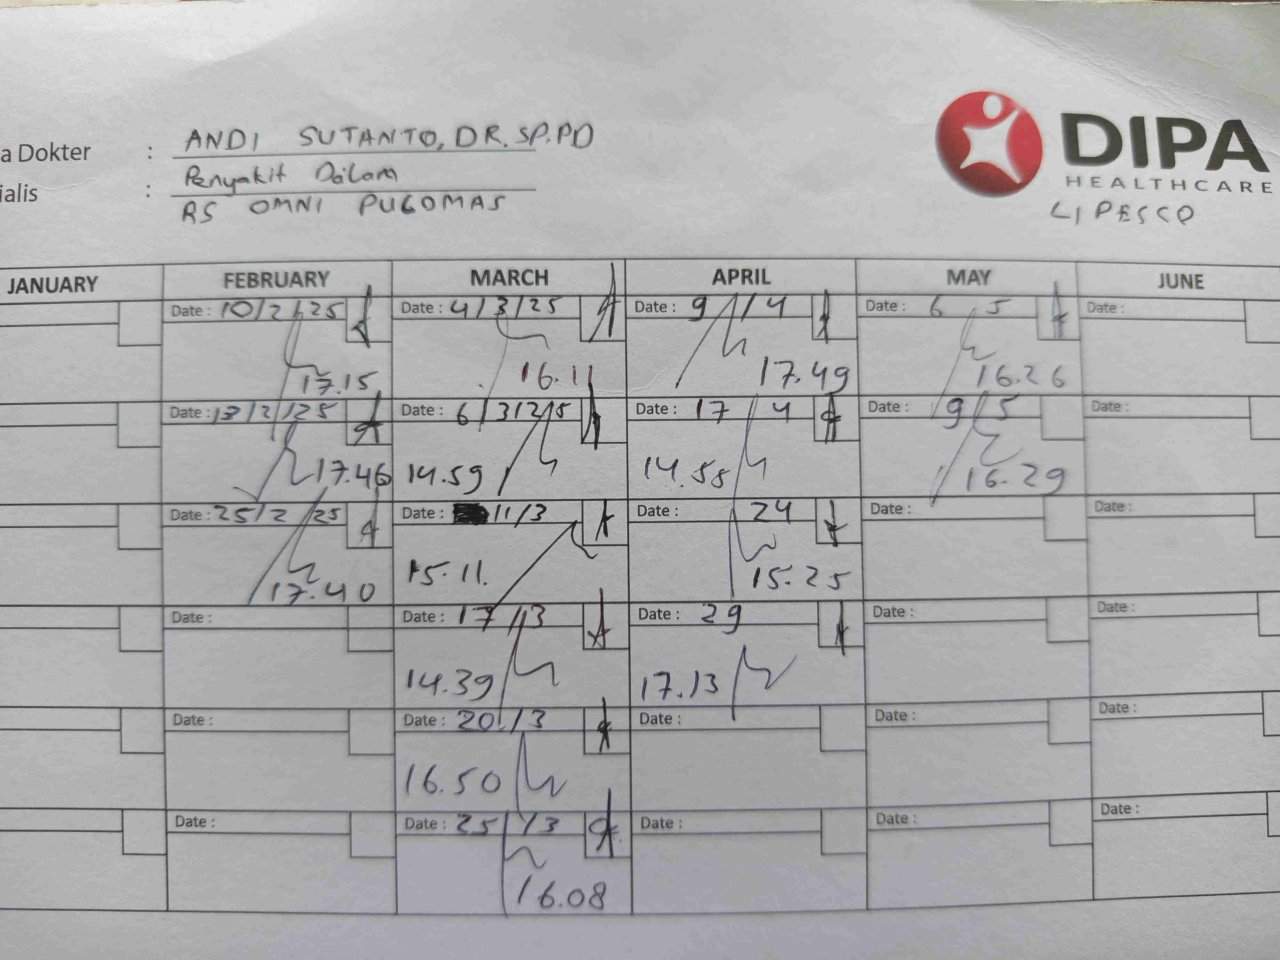 a Dokter : ANDI SUTANTO, DR. SP.PD
ialis : Penyakit Dalam
RS OMNI PULOMAS
DIPA
HEALTHCARE
LIPESCO
JANUARY FEBRUARY MARCH APRIL MAY JUNE
Date : 10/2/25 Date : 4/3/25 Date : 9/4 Date : 6 5 Date :
17.15 16.11 17.49 16.26
Date : 13/2/25 Date : 6/3/25 Date : 17 4 Date : 9/5 Date :
17.46 14.59 14.58 16.29
Date : 25/2 25 Date : 11/3 Date : 24 Date : Date :
17.40 15.11. 15.25
Date : Date : 17/3 Date : 29 Date : Date :
14.39 17.13
Date : Date : 20/3 Date : Date : Date :
16.50
Date : Date : 25/3 Date : Date : Date :
16.08